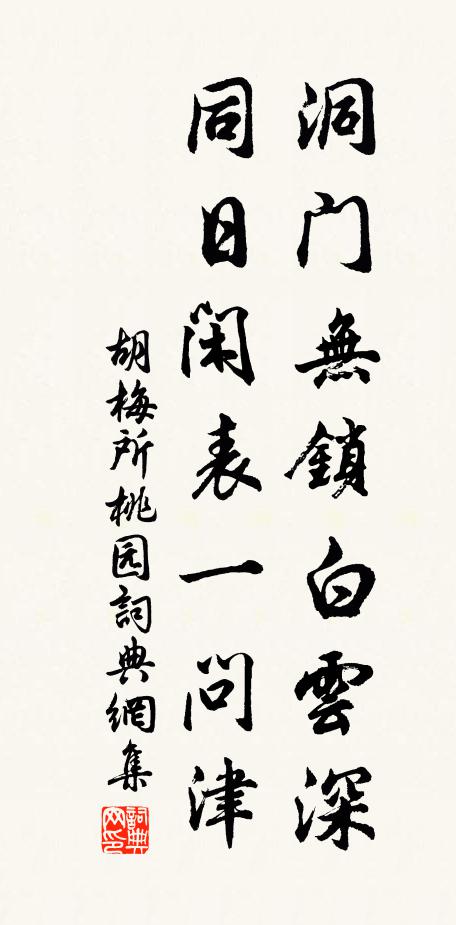 洞门無鎖白雲深
同日閑表一问津
胡梅所桃园詞典網集
詞典网印